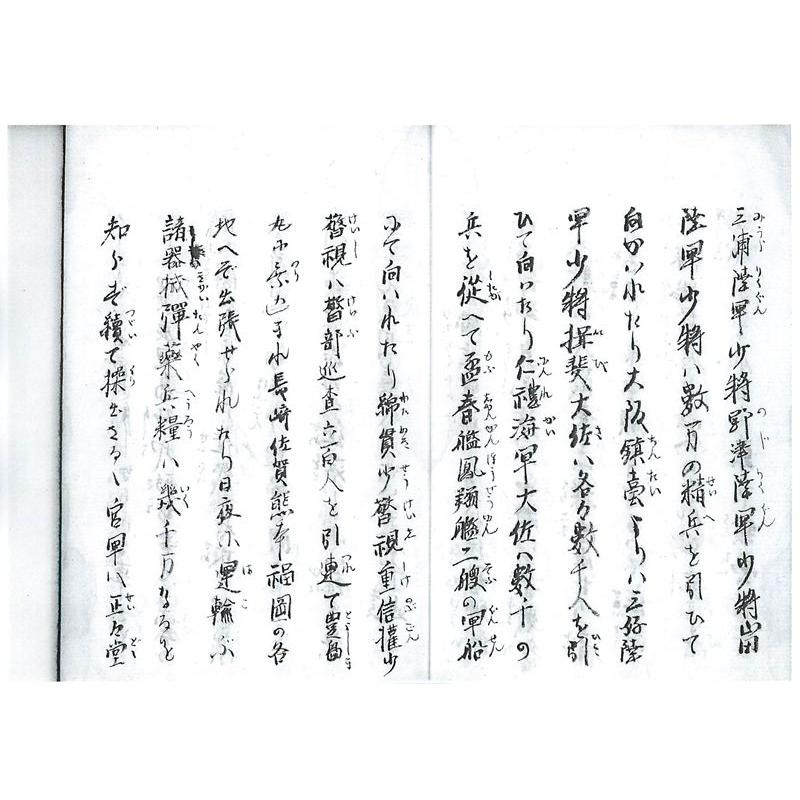 三浦陸軍少将野津陸軍少将山田
陸軍少将ハ数万の精兵を引ひて
向かハれたり大阪鎮臺よりハ三好陸
軍少将揖斐大佐ハ各々数千人を引
ひて向ハたり仁禮海軍大佐ハ数千の
兵を従へて孟春艦鳳翔艦二艘の軍船
にて向ハれたり綿貫少警視重信權少
警視ハ警部巡査六百人を引連て豊島
丸に乘込まれ長崎佐賀熊本福岡の各
地へぞ出張せられたり日夜に運輸ぶ
諸器械彈藥兵糧ハ幾千万なるを
知らず續て操出さるゝ官軍ハ正々堂